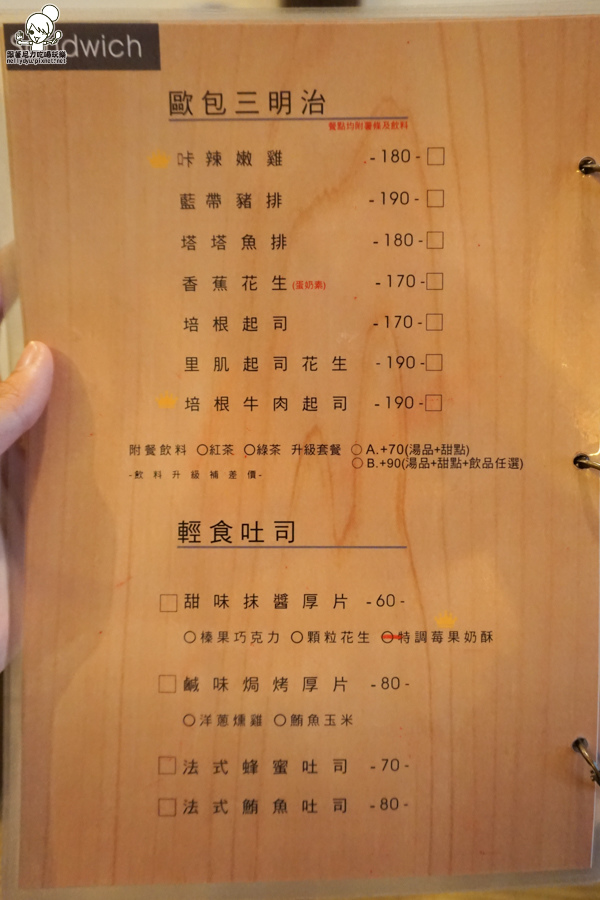 Sandwich
跟著尼力吃喝玩樂
nellydyu.pixnet.net
歐包三明治
餐點均附薯條及飲料
咔辣嫩雞 -180-
藍帶豬排 -190-
塔塔魚排 -180-
香蕉花生(蛋奶素) -170-
培根起司 -170-
里肌起司花生 -190-
培根牛肉起司 -190-
附餐飲料 ○紅茶 ○綠茶 升級套餐 ○A.+70(湯品+甜點)
○B.+90(湯品+甜點+飲品任選)
-飲料升級補差價-
輕食吐司
甜味抹醬厚片 -60-
○榛果巧克力 ○顆粒花生 ○特調莓果奶酥
鹹味焗烤厚片 -80-
○洋蔥燻雞 ○鮪魚玉米
法式蜂蜜吐司 -70-
法式鮪魚吐司 -80-